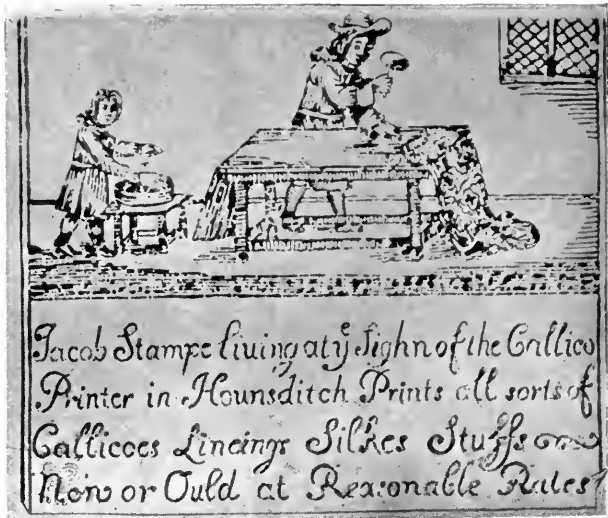 Jacob Stampe living at yͤ Sighn of the Callico
Printer in Hounsditch Prints all sorts of
Callicoes Lineings Silkes Stuffs
New or Ould at Reasonable Rates